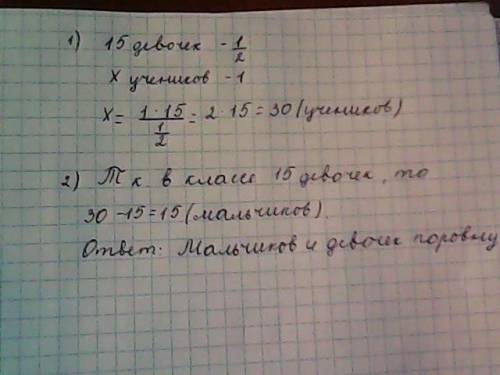 1) 15 девочек - 1/2
x учеников - 1
x = (1 · 15)/(1/2) = 2 · 15 = 30 (учеников)
2) Т к в классе 15 девочек, то
30 - 15 = 15 (мальчиков).
Ответ: Мальчиков и девочек поровну